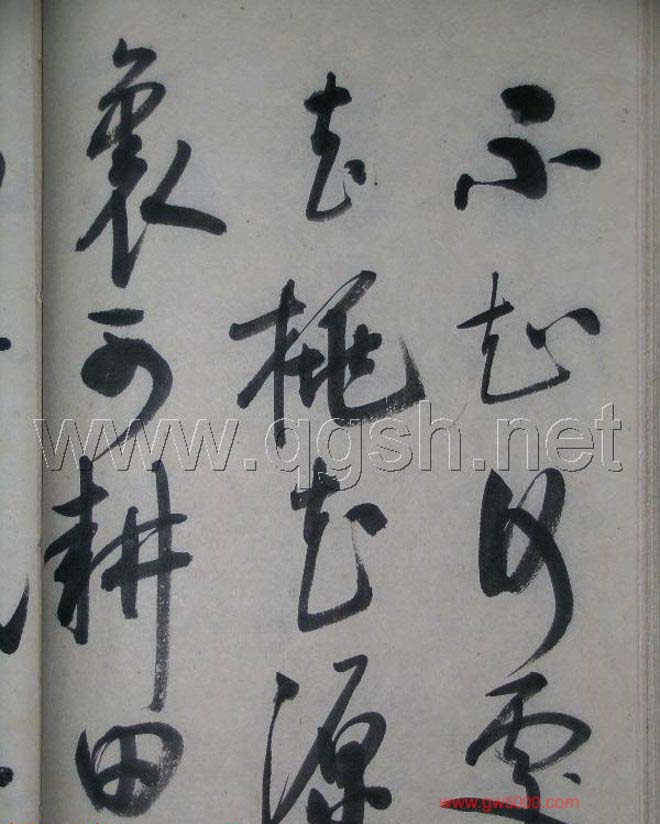 不知何處
去桃花源
裏可耕田
www.qgsh.net
www.gw8000.com